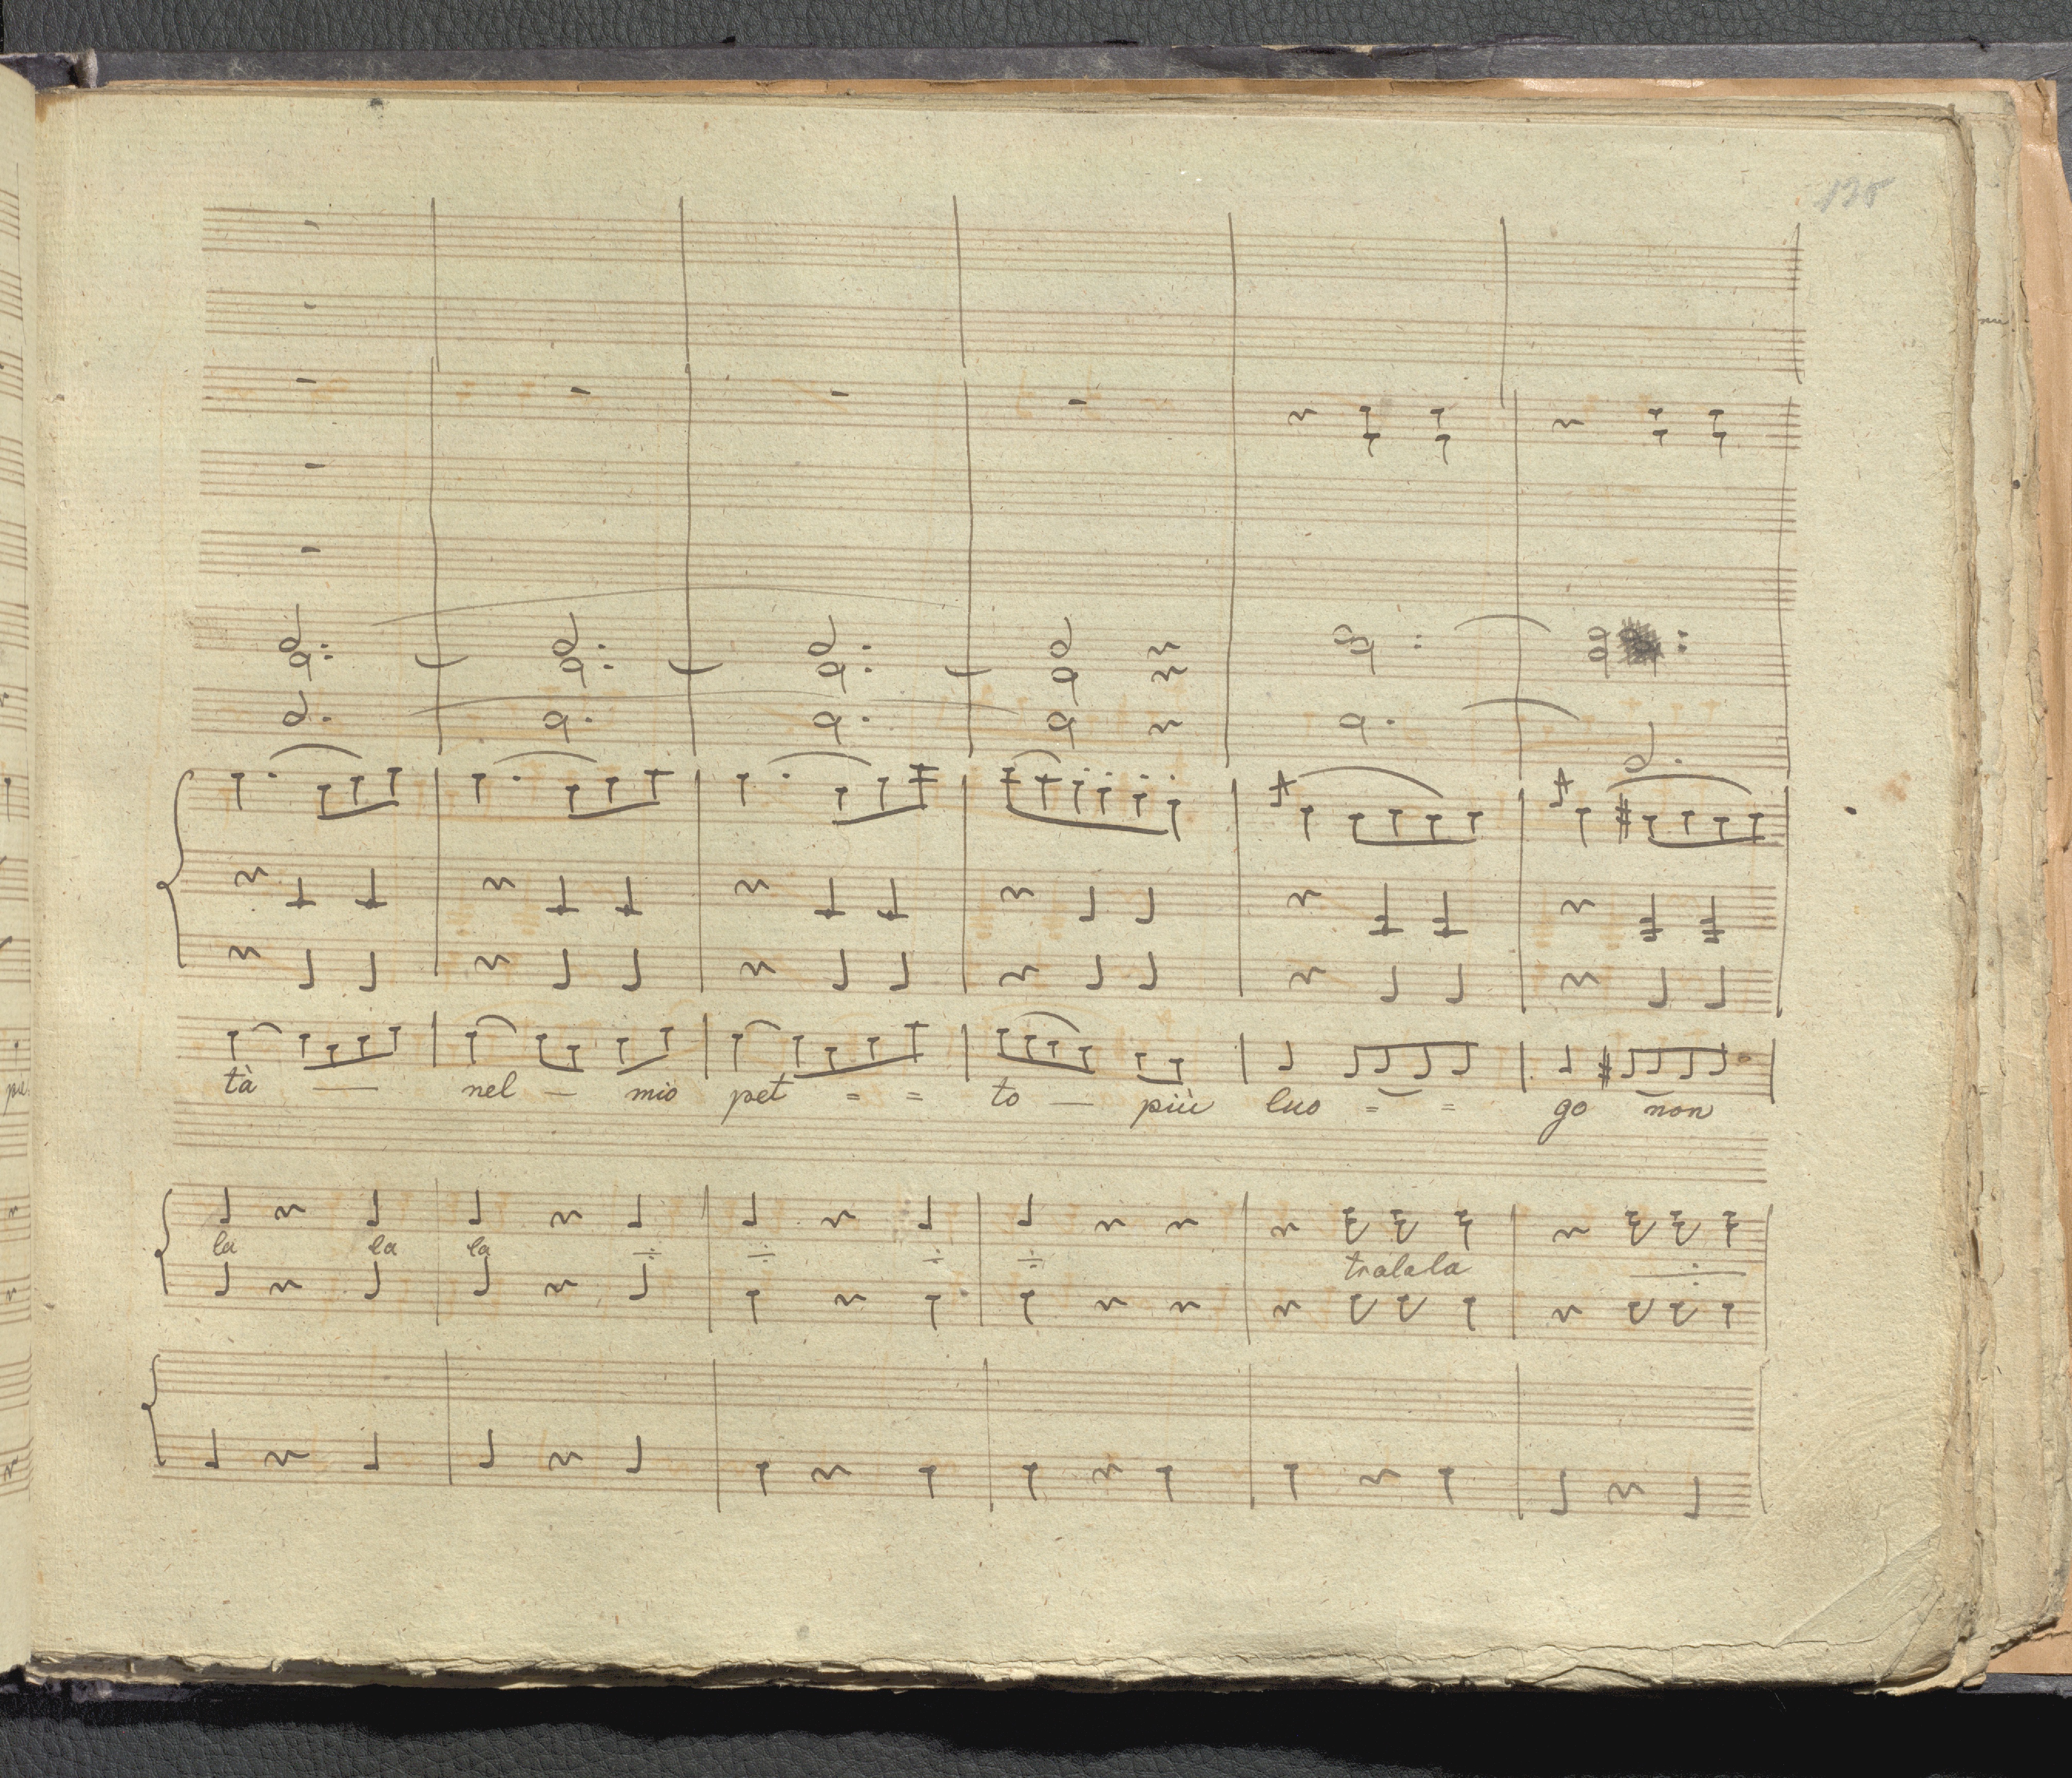 135
tà — nel — mio pet = = to — più luo = = go non
la la la
tralala